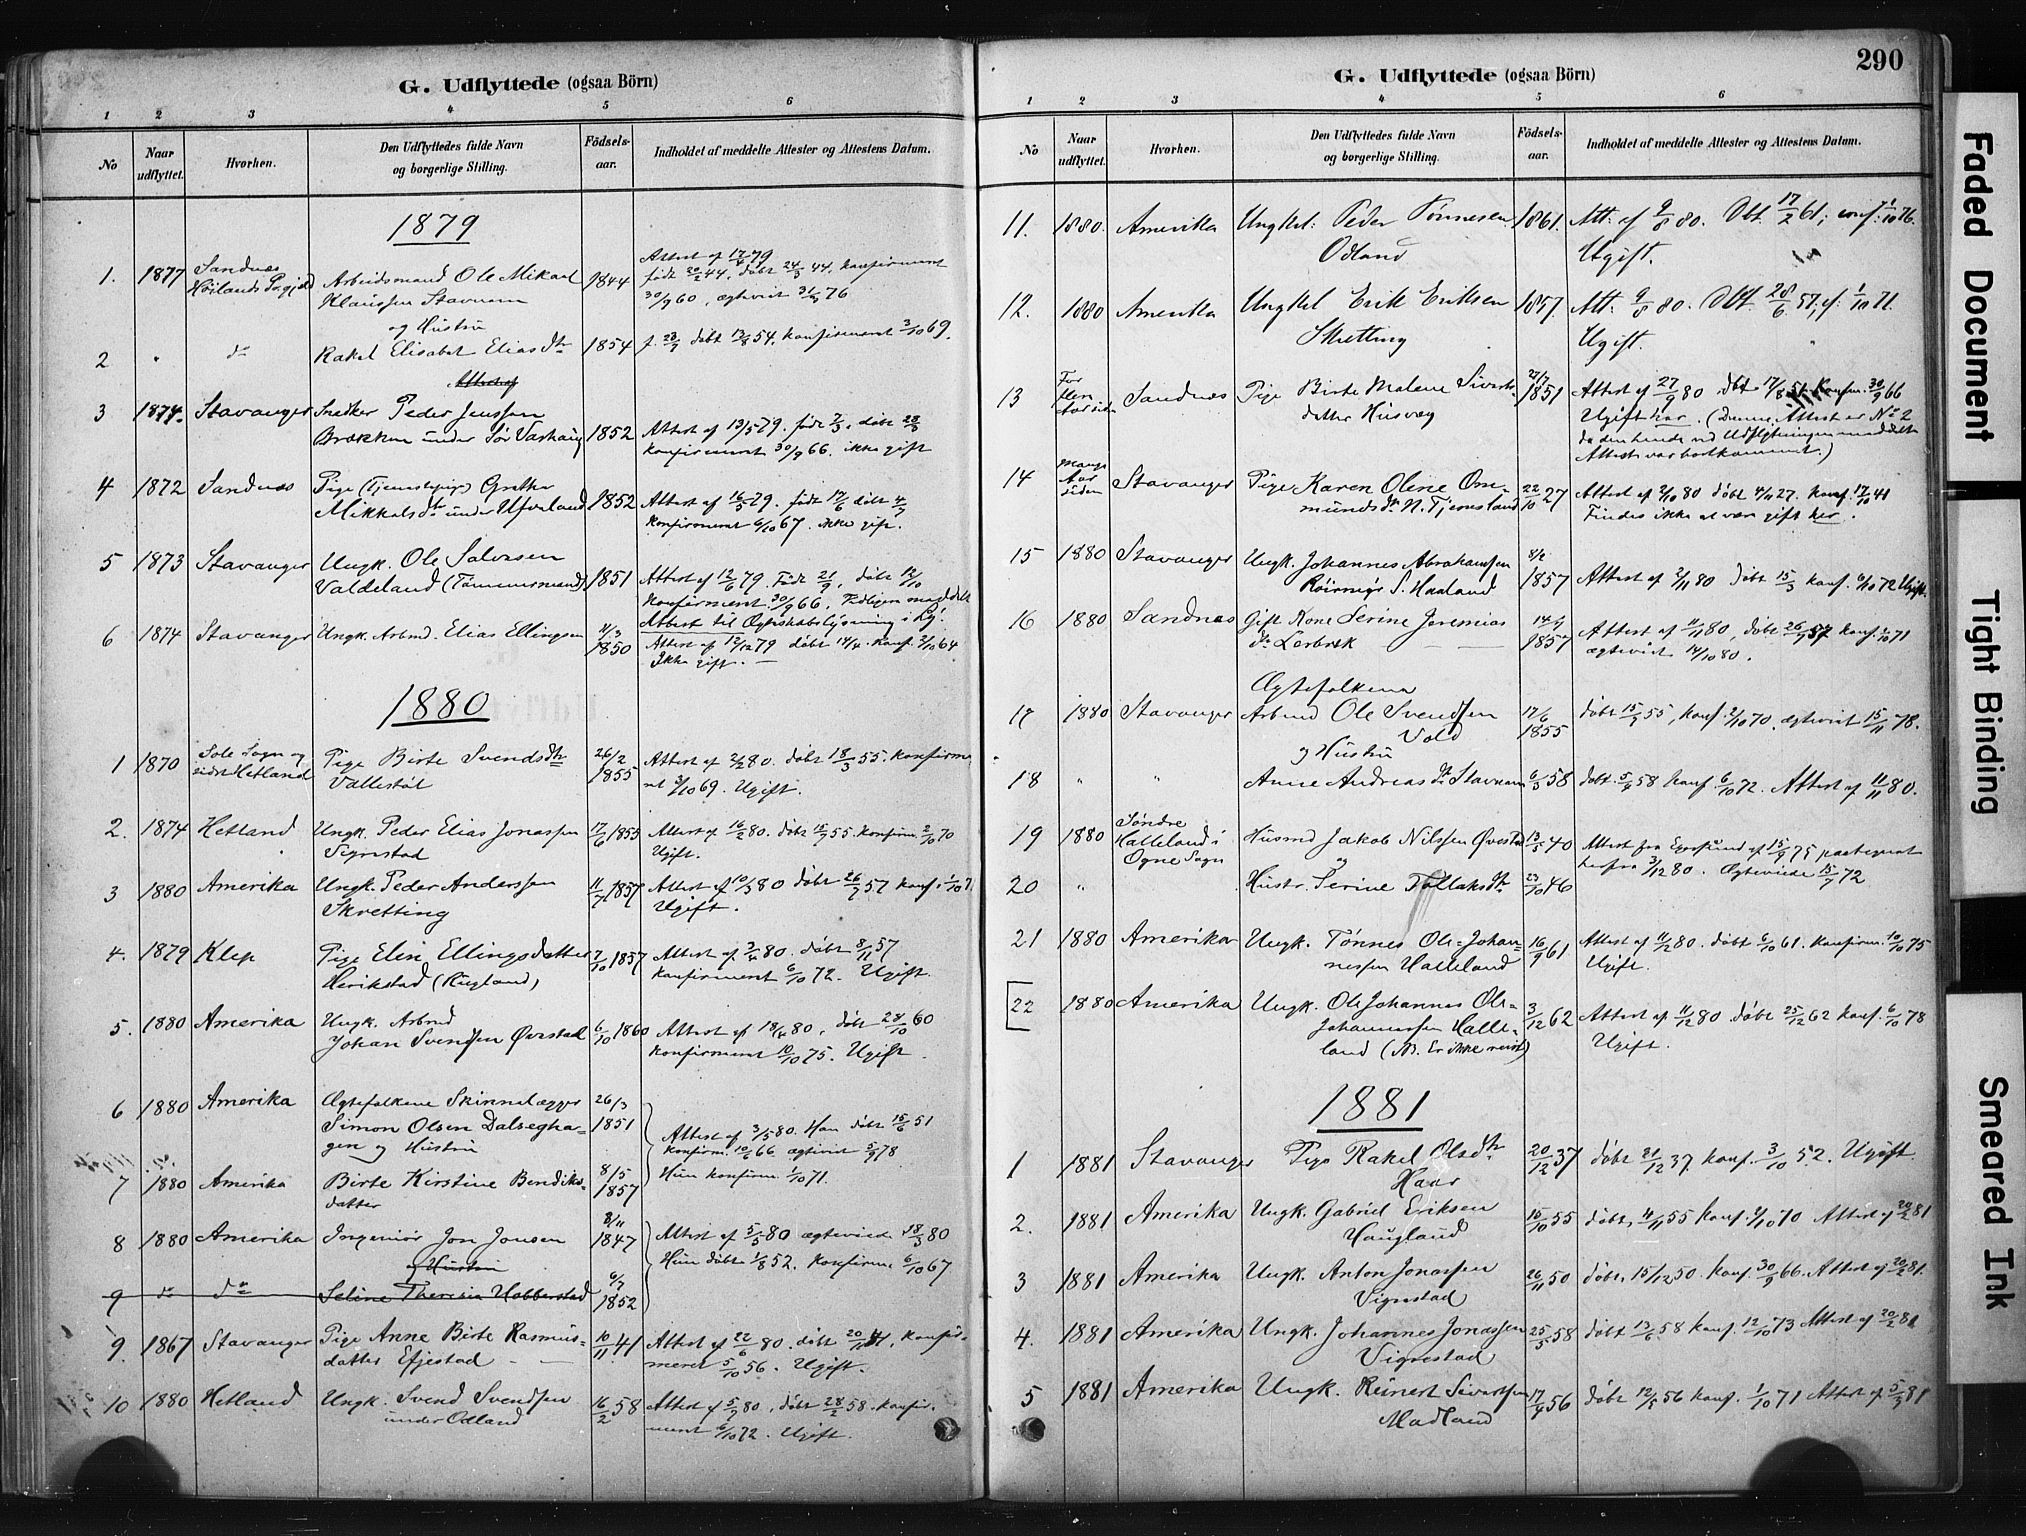 G. Udflyttede (ogsaa Börn)
1 2 3 4 5 6
No
Naar udflyttet.
Hvorhen.
Den Udflyttedes fulde Navn
og borgerlige Stilling.
Födsels-
aar.
Indholdet af meddelte Attester og Attestens Datum.
1879
1. 1877 Sandnæs Arbeidsmand Ole Mikael 1844 Attest af 17/4 79
Høilands Prgjeld Klaussen Stavnem født 20/2 44, døbt 24/3 44, konfirmeret
og Hustru 30/9 60, ægteviet 31/3 76
2 " do Rakel Elisabet Eliasdtr 1854 døbt 13/8 54, konfirmeret 3/10 69.
3 1874. Stavanger Snedker Peder Jenssen 1852 Attest af 13/5 79. født 7/3, døbt 28/3
Brækken under Sør Varhaug konfirmeret 30/9 66. ikke gift
4 1872 Sandnæs Pige (Tjenestepige) Grethe 1852 Attest af 16/5 79. født 17/6 døbt 4/7
Mikkalsdtr under konfirmeret 6/10 67. ikke gift.
5 1873 Stavanger Ungk. Ole Salvesen 1851 Attest af 12/6 79. Født 21/9, døbt 12/10
Valdeland (Tømmermand) konfirmeret 30/9 66. Tidligere meddelt
Attest til Ægteskabslysning i
6 1874 Stavanger Ungk. Arbmd. Elias Ellingsen 4/3 1850 Attest af 12/12 79 døbt 14/4. konf. 2/10 64
Ikke gift. —
1880
1 1870 Sole Sogn og Pige Birte Svendsdtr 26/2 Attest af 2/2 80. døbt 18/3 55. konfirme
sidst Hetland Vallestøl 1855 ret 3/10 69. Ugift.
2. 1874 Hetland Ungk. Peder Elias Jonassen 17/6 1855 Attest af 16/2 80. døbt 15/7 55. konfirm. 2/10 70
Vigrestad Ugift.
3 1880 Amerika Ungk. Peder Anderssen 11/7 1857 Attest af 10/3 80 døbt 26/7 57 konf. 1/10 7
Skretting Ugift.
4. 1879 Klep Pige Elin Ellingsdatter 7/10 1857 Attest af 3/4 80. døbt 8/11 57
Herikstad (Kugland) konfirmeret 6/10 72. Ugift.
5. 1880 Amerika Ungk. Arbmd 6/10 1860 Attest af 18/4 80. døbt 28/10 60
Johan Svendsen Øvestad konfirmeret 10/10 75. Ugift.
6 1880 Amerika Ægtefolkene Skinnelægger 26/3 1851 Attest af 3/5 80. Han døbt 15/6 51
Simon Olsen Dalseghagen og Hustru konfirm. 10/6 66 ægteviet 5/9 78
7 1880 Amerika Birte Kirstine Bendiks- 8/5 1857 Hun konfirm. 1/10 71.
datter
8 1880 Amerika Ingeniør Jon Jonsen 8/11 1847 Attest af 5/5 80 ægteviede 18/3 80
og Hustru Hun døbt 1/8 52. konfirm. 6/10 67
9 do do Seline Theresia Hobberstad 6/7 1852
9. 1867 Stavanger Pige Anne Birte Rasmus- 10/11 41 Attest af 22/6 80. døbt 20/11 41. konfir-
datter Efjestad meret 5/10 56. Ugift.
10 1880 Hetland Ungk. Svend Svendsen 16/2 58 Attest af 5/9 80, døbt 28/2 58. konfir-
under Odland meret 6/10 72. Ugift.
290
G. Udflyttede (ogsaa Börn)
1 2 3 4 5 6
No
Naar udflyttet.
Hvorhen.
Den Udflyttedes fulde Navn
og borgerlige Stilling.
Födsels-
aar.
Indholdet af meddelte Attester og Attestens Datum.
11. 1880. Amerika Ungkl. Peder Tønnesen 1861. Att. af 9/8 80. Døbt 17/2 61; conf. 1/10 76.
Odland Ugift.
12. 1880 Amerika Ungkl Erik Eriksen 1857. Att: 9/8 80. Døbt 28/6 57; cf: 1/10 71.
Skretting Ugift.
13 For flere Aar siden Sandnæs Pige Birte Malene Siverts- 1851 Attest af 27/9 80 døbt 17/8 51 konfirm. 30/9 66
datter Husveg Ugift her. (Denne Attest er No 2
da den hende ved Udflytningen meddelte
Attest var bortkommet.)
14 mange Aar siden Stavanger Pige Karen Oline Om- 22/10 27 Attest af 2/10 80 døbt 4/11 27. konf. 17/10 41
mundsdtr N. Tjemsland Findes ikke at være gift her.
15 1880 Stavanger Ungk. Johannes Abrahamsen 8/2 1857 Attest af 2/11 80 døbt 15/3 konf. 6/10 72 Ugift.
S. Haaland
16 1880 Sandnæs Gift Kone Serine Jeremias 14/9 1857 Attest af 11/11 80, døbt 26/9 57 konf. 1/10 71
dtr Lerbrek ægteviet 14/10 80.
Ægtefolkene
17 1880 Stavanger Arbmd Ole Svendsen 17/6 1855 døbt 15/7 55, konf. 2/10 70, ægteviet 15/11 78.
Vold
og Hustru
18 " " Anne Andreasdtr Stavnem 6/3 58 døbt 5/4 58 konf. 6/10 72. Attest af 11/11 80.
19 1880 Søndre Husmd Jakob Nilssen Øvestad 13/5 40 Attest fra Egersund af 15/9 75 paategnet
Halleland i og herfra 3/12 80. Ægteviede 15/7 72
Ogne Sogn
20 " Hustr. Serine Tollaksdtr 23/10 46
21 1880 Amerika Ungk. Tønnes Ole Johan- 16/9 61 Attest af 11/12 80. døbt 6/10 61. konfirm. 10/10 75
nessen Halleland Ugift.
22 1880 Amerika Ungk. Ole Johannes Ole- 3/12 62 Attest af 11/12 80 døbt 25/12 62 konf. 6/10 78
Johannessen Halle- Ugift.
land (NB. Er ikke reist)
1881
1 1881 Stavanger Pige Rakel Olsdtr 20/12 37 døbt 31/12 37 konf. 3/10 52. Ugift.
Haar
2. 1881 Amerika Ungk. Gabriel Eriksen 15/10 55 døbt 4/11 55 konf. 2/10 70 Attest af 20/2 81
Haugland
3 1881 Amerika Ungk. Anton Jonassen 26/11 50 døbt 15/12 50. konf. 30/9 66. Attest af 20/2 81.
Vigrestad
4. 1881 Amerika Ungk. Johannes Jonassen 25/5 58 døbt 13/6 58 konf. 12/10 73 Attest af 20/2 81
Vigrestad
5 1881 Amerika Ungk. Reinert Sivertsen 17/4 56 døbt 12/5 56 konf. 1/10 71 Attest af 5/3 81
Madland
Faded Document
Tight Binding
Smeared Ink